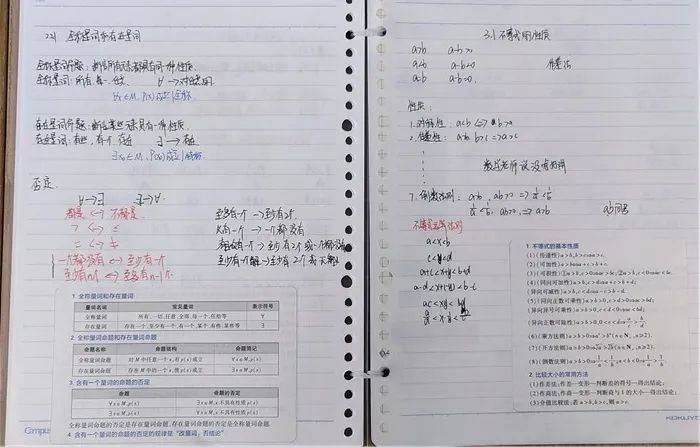 全称量词和存在量词
全称量词命题:
全称量词: 所有,每一,任意 ∀ →对任意
∀x∈M, P(x)成立
存在量词命题:
存在量词: 有些,有个,存在 ∃ →存在
∃x₀∈M, P(x₀)成立
否定.
∀→∃ ∃→∀
都是 ↔ 不都是
> ↔ ≤
= ↔ ≠
一个都没有 ↔ 至少有一个
至少有n个 ↔ 至多有n-1个
至多有一个→至少有2个
只有一个→一个都没有
1. 全称量词和存在量词
量词名称 常见量词 表示符号
全称量词 所有、一切、任意、全部、每一个、任给等 ∀
存在量词 存在一个、至少有一个、有一个、某个、有些、某些等 ∃
2. 全称量词命题和存在量词命题
命题名称 命题结构 命题简记
全称量词命题 对M中任意一个x,有p(x)成立 ∀x∈M,p(x)
存在量词命题 存在M中的一个x,使p(x)成立 ∃x∈M,p(x)
3. 含有一个量词的命题的否定
命题 命题的否定
∀x∈M,p(x) ∃x∈M,x不具有性质p(x)
∃x∈M,p(x) ∀x∈M,x不具有性质p(x)
全称量词命题的否定是存在量词命题,存在量词命题的否定是全称量词命题.
4. 含有一个量词的命题的否定的规律是“改量词,否结论”
Campus
3.1 不等式的性质
a>b a-b>0
a<b a-b<0
a=b a-b=0.
作差法
性质:
1. 对称性: a<b ⇔ b>a
2. 传递性: a>b, b>c ⇒ a>c
数学老师说没有用
7. 倒数法则: a>b, ab>0 ⇒ 1/a<1/b
1/a<1/b, ab>0, ⇒ a>b
ab同号
不等式运算法则
a<x<b
c<y<d
a+c<x+y<b+d
a-d<x-y<b-c
ac<xy<bd
a/d<x/y<b/c
1. 不等式的基本性质
(1)(传递性)a>b,b>c⇒a>c;
(2)(可加性)a>b⇔a+c>b+c.
(3)(可乘性)若a>b,c>0⇒ac>bc;若a>b,c<0⇒ac<bc.
(4)(同向可加性)a>b,c>d⇒a+c>b+d;
(异向可减性)a>b,c<d⇒a-c>b-d.
(5)(同向正数可乘性)a>b>0,c>d>0⇒ac>bd;
(6)(乘方法则)a>b>0⇒aⁿ>bⁿ(n∈N,n≥2).
(7)(开方法则)a>b>0⇒ⁿ√a>ⁿ√b(n∈N,n≥2).
2. 比较大小的常用方法
(1)作差法:作差—变形—判断差的符号—得出结论;
(2)作商法:作商—变形—判断商与1的大小—得出结论;
(3)介值比较法:若a>b,b>c,则a>c.
KOKUYO